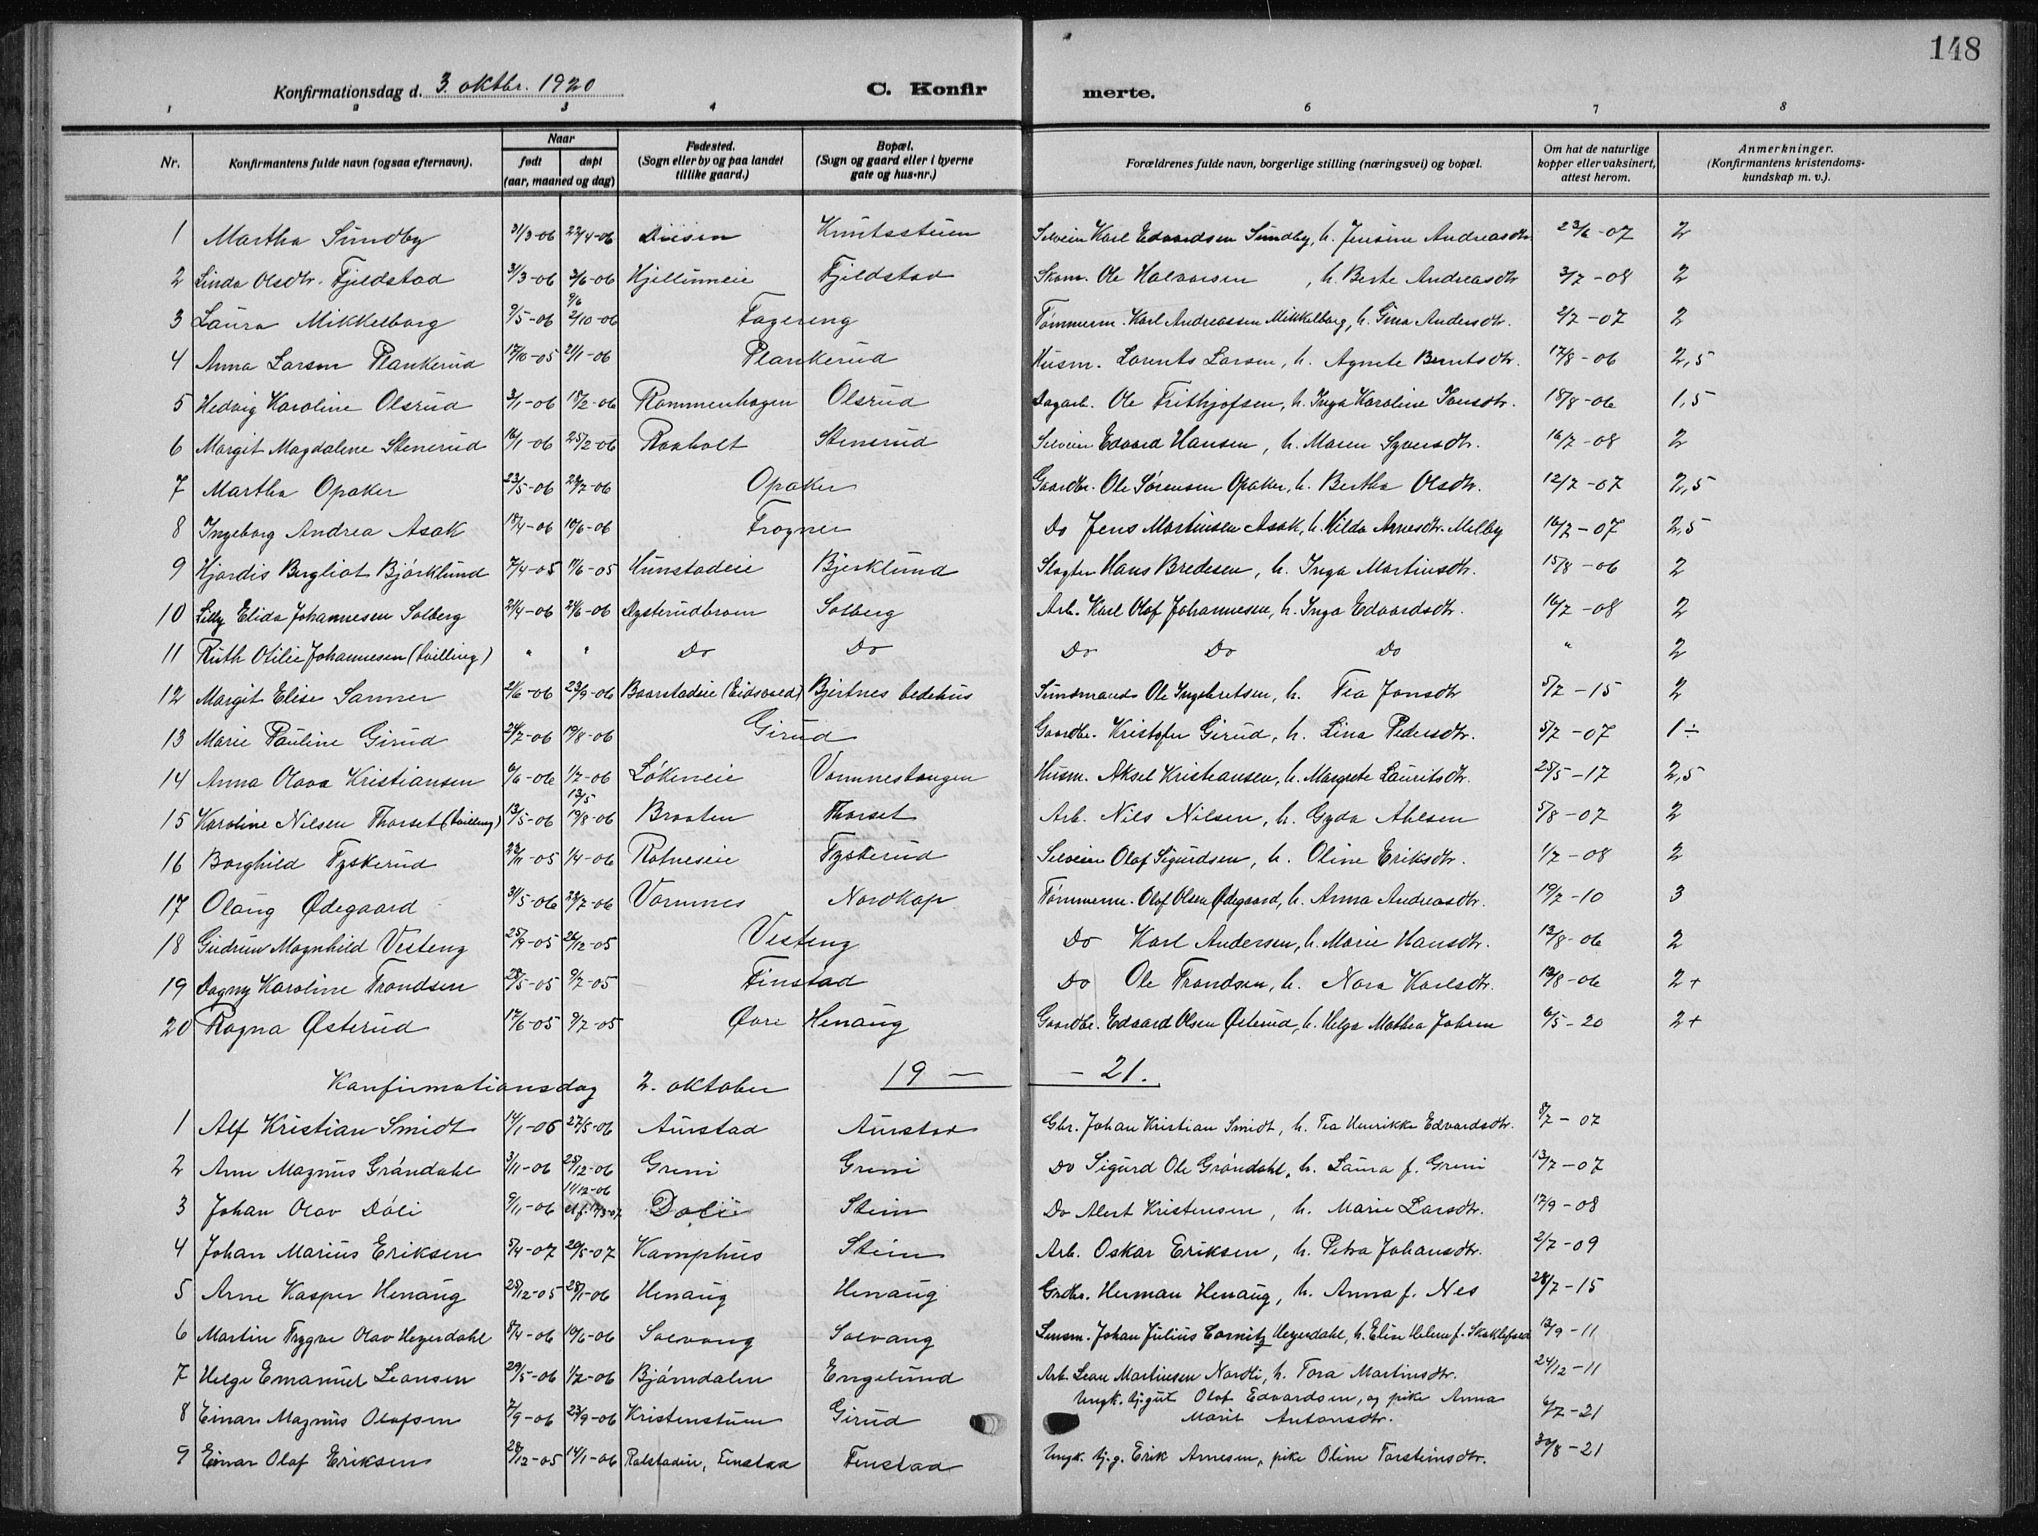 148
Konfirmationsdag d. 3. oktbr. 1920 C. Konfir merte.
1 2 3 4 6 7 8
Nr. Konfirmantens fulde navn (ogsaa efternavn). Naar født døpt (aar, maaned og dag) Fødested. (Sogn eller by og paa landet tillike gaard.) Bopæl. (Sogn og gaard eller i byerne gate og hus-nr.) Forældrenes fulde navn, borgerlige stilling (næringsvei) og bopæl. Om hat de naturlige kopper eller vaksinert, attest herom. Anmerkninger. (Konfirmantens kristendomskundskap m. v.).
1 Martha Sundby 31/3-06 22/4-06 Disen Knutsstuen Selveier Karl Edvardsen Sundby, h. Jensine Andreasdtr. 23/6-07 2
2 Linda Olsdtr. Fjeldstad 31/3-06 3/6-06 Hjellumeie Fjeldstad Skom. Ole Halvorsen, h. Berte Andreasdtr 3/7-08 2
3 Laura Mikkelborg 9/5-06 9/6 2/10-06 Fagereng Tømmerm. Karl Andreassen Mikkelborg, h. Gina Andersdtr. 2/7-07 2
4 Anna Larsen Plankerud 17/10-05 21/1-06 Plankerud Husm. Lorents Larsen, h. Agnete Berntsdtr. 17/8-06 2,5
5 Hedvig Karoline Olsrud 3/1-06 18/2-06 Rommenhagen Olsrud Dagarb. Ole Frithjofsen, h. Inga Karoline Jensdtr. 18/8-06 1,5
6 Margit Magdalene Stenerud 16/1-06 25/2-06 Raaholt Stenerud Selveier Edvard Hansen, h. Maren Syversdtr. 16/7-08 2
7 Martha Opaker 23/5-06 22/7-06 Opaker Gaardbr. Ole Sørensen Opaker, h. Bertha Olsdtr. 12/7-07 2,5
8 Ingeborg Andrea Asak 18/4-06 10/6-06 Frogner Do Jens Martinsen Asak, h. Hilda Arnesdtr. Melby 16/7-07 2,5
9 Hjørdis Bergliot Bjørklund 7/4-05 11/6-05 Hunstadeie Bjerklund Slagter Hans Bredesen, h. Inga Martinsdtr. 15/8-06 2
10 Lilly Elida Johannesen Solberg 21/4-06 24/6-06 Dysterudbroen Solberg Arb. Karl Olof Johannesen, h. Inga Edvardsdtr. 16/7-08 2
11 Ruth Otilie Johannesen (tvilling) " " Do Do Do Do Do " 2
12 Margit Elise Sanner 21/6-06 23/9-06 Baarstadeie (Eidsvold) Bjertnes bedehus Sundmand Ole Ingebretsen, h. Tea Jonsdtr 5/7-15 2
13 Marie Pauline Girud 24/7-06 19/8-06 Girud Gaardbr. Kristofer Girud, h. Lina Pedersdtr. 5/7-07 1÷
14 Anna Olava Kristiansen 6/6-06 1/7-06 Løkeneie Vormnestangen Husm. Aksel Kristiansen, h. Margrete Lauritsdtr. 25/5-17 2,5
15 Karoline Nilsen Thorset (tvilling) 13/5-06 13/5 19/8-06 Braaten Thorset Arb. Nils Nilsen, h. Gyda Ahlsen 5/8-07 2
16 Borghild Tyskerud 22/11-05 1/4-06 Rotneseie Tyskerud Selveier Olaf Sigurdsen, h. Oline Eriksdtr. 1/7-08 2
17 Olaug Ødegaard 31/5-06 22/7-06 Vormnes Nordkap Tømmerm. Olaf Olsen Ødegaard, h. Anna Andreasdtr. 19/7-10 3
18 Gudrun Magnhild Vesteng 25/9-05 26/12-05 Vesteng Do Karl Andersen, h. Marie Hansdtr. 12/8-06 2
19 Dagny Karoline Trondsen 28/5-05 9/7-05 Finstad Do Ole Trondsen, h. Nora Karlsdtr. 12/8-06 2+
20 Ragna Østerud 17/6-05 9/7-05 Øvre Henaug Gaardbr. Edvard Olsen Østerud, h. Helga Mathea Johsen 6/5-20 2+
Konfirmationsdag 2. oktober 19 — - 21.
1 Alf Kristian Smidt 14/1-06 27/5-06 Aurstad Aurstad Gbr. Johan Kristian Smidt, h. Tea Henrikke Edvardsdtr. 8/7-07
2 Arne Magnus Grøndahl 3/11-06 25/12-06 Greni Greni Do Sigurd Ole Grøndahl, h. Laura f. Greni 13/7-07
3 Johan Olav Døli 9/11-06 14/12-06 Døli Stein Do Alert Kristensen, h. Marie Larsdtr. 12/9-08
4 Johan Marius Eriksen 5/4-07 20/5-07 Kamphus Stein Arb. Oskar Eriksen, h. Petra Johansdtr. 2/7-09
5 Arne Kasper Henaug 25/12-05 28/1-06 Henaug Henaug Grdbr. Herman Henaug, h. Anna f. Nes 28/7-15
6 Martin Trygve Olav Heyerdahl 8/4-06 10/6-06 Solvang Solvang Lensm. Johan Julius Heyerdahl, h. Elise Helene f. 12/9-11
7 Helge Emanuel Leansen 29/5-06 1/7-06 Bjørndalen Engelund Arb. Lean Martinsen Nordli, h. Tora Martinsdtr. 24/12-11
8 Einar Magnus Olafsen 7/9-06 23/9-06 Kristenstuen Girud Ungk. bj.gut Olaf Edvardsen, og pike Anna Marie Antonsdtr. 6/7-21
9 Einar Olaf Eriksen 28/12-05 14/1-06 Rolstadeie, Finstad Finstad Ungk. bj.g. Erik Arnesen, pike Oline Torsteinsdtr. 30/8-21